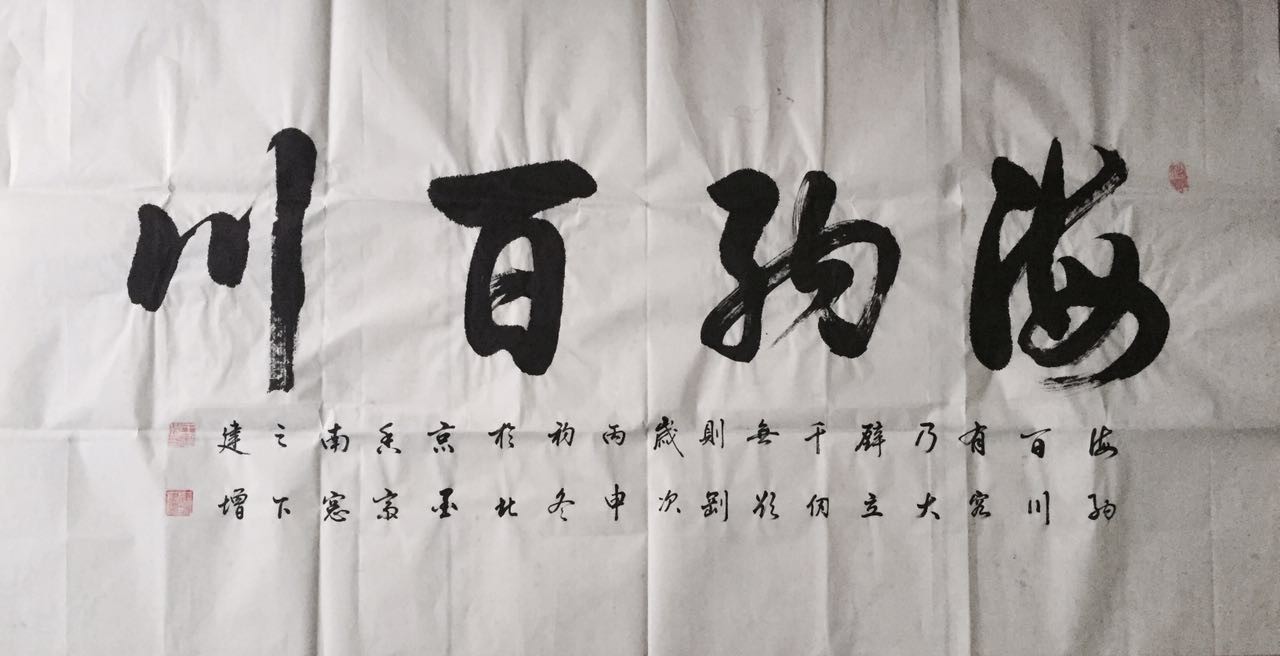 海納百川
海納
百川
有容
乃大
壁立
千仞
無欲
則剛
歲次
丙申
初冬
於北
京墨
香齋
南窓
之下
建增